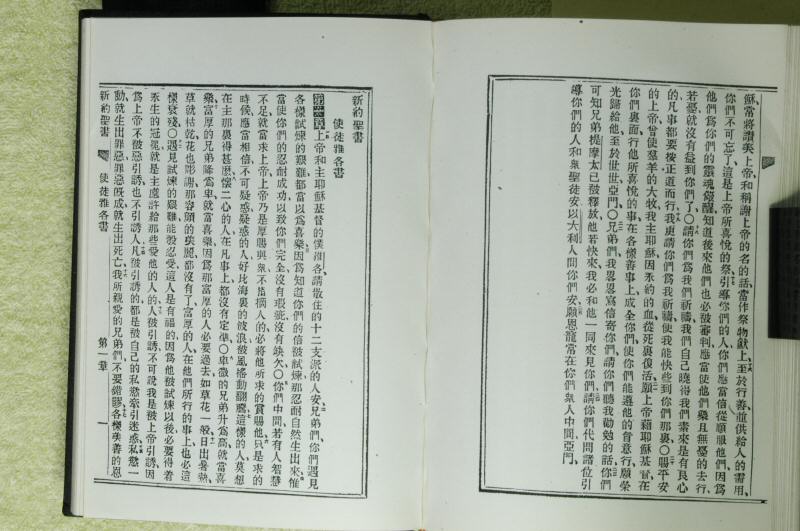 穌常將讚美上帝和稱謝上帝的名的話當作祭物獻上至於行善並供給人的需用、
你們不可忘了這是上帝所喜悅的祭引導你們的人你們應當倍從順服他們因爲
他們爲你們的靈魂儆醒知道後來他們也必被審判應當使他們樂且無憂的去行
若憂就沒有益到你們了○請你們爲我們祈禱我們自己曉得我們素來是有良心
的凡事都要按正道而行我更請你們爲我祈禱使我能快些到你們那裏○賜平安
的上帝曾使羣羊的大牧我主耶穌因永約的血從死裏復活願上帝藉耶穌基督在
你們裏面行他所喜悅的事在各樣善事上成全你們使你們能遵他的旨意行願榮
光歸給他至於世世亞門○兄弟們我畧畧寫信寄你們請你們聽我勸勉的話你們
可知兄弟提摩太已被釋放他若快來我必和他一同來見你們請你們代問諸位引
導你們的人和衆聖徒安以大利人問你們安願恩寵常在你們衆人中間亞門、
新約聖書
使徒雅各書
第一章 上帝和主耶穌基督的僕雅各請散住的十二支派的人安兄弟們你們遇見
各樣試煉的艱難都當以爲喜樂因爲知道你們的信被試煉那忍耐自然生出來惟
當使你們的忍耐成功以致你們完全沒有瑕玼沒有缺欠○你們中間若有人智慧
不足就當求上帝上帝乃是厚賜與衆不斥摘人的必將他所求的賞賜他只是求的
時候應當相信不可疑惑疑惑的人好比海裏的波浪被風搖動翻騰這樣的人莫想
在主那裏得甚麽懷二心的人在凡事上都沒有定準○卑微的兄弟升爲高就當喜
樂富厚的兄弟降爲卑就當喜樂因爲那富厚的人必要過去如草花一般日出暑熱
草就枯乾花也彫謝那容顏的美麗都沒有了富厚的人在他們所行的事上也必這
樣衰殘○遇見試煉的艱難能彀忍受這人是有福的因爲他被試煉以後必要得着
永生的冠冕就是主應許給那些愛他的人的人被引誘不可說我是被上帝引誘因
爲上帝不被惡引誘也不引誘人凡被引誘的都是被自己的私慾牽引迷惑私慾一
動就生出罪惡罪惡旣成就生出死亡我所親愛的兄弟們不要錯謬各樣美善的恩
新約聖書 使徒雅各書 第一章 一